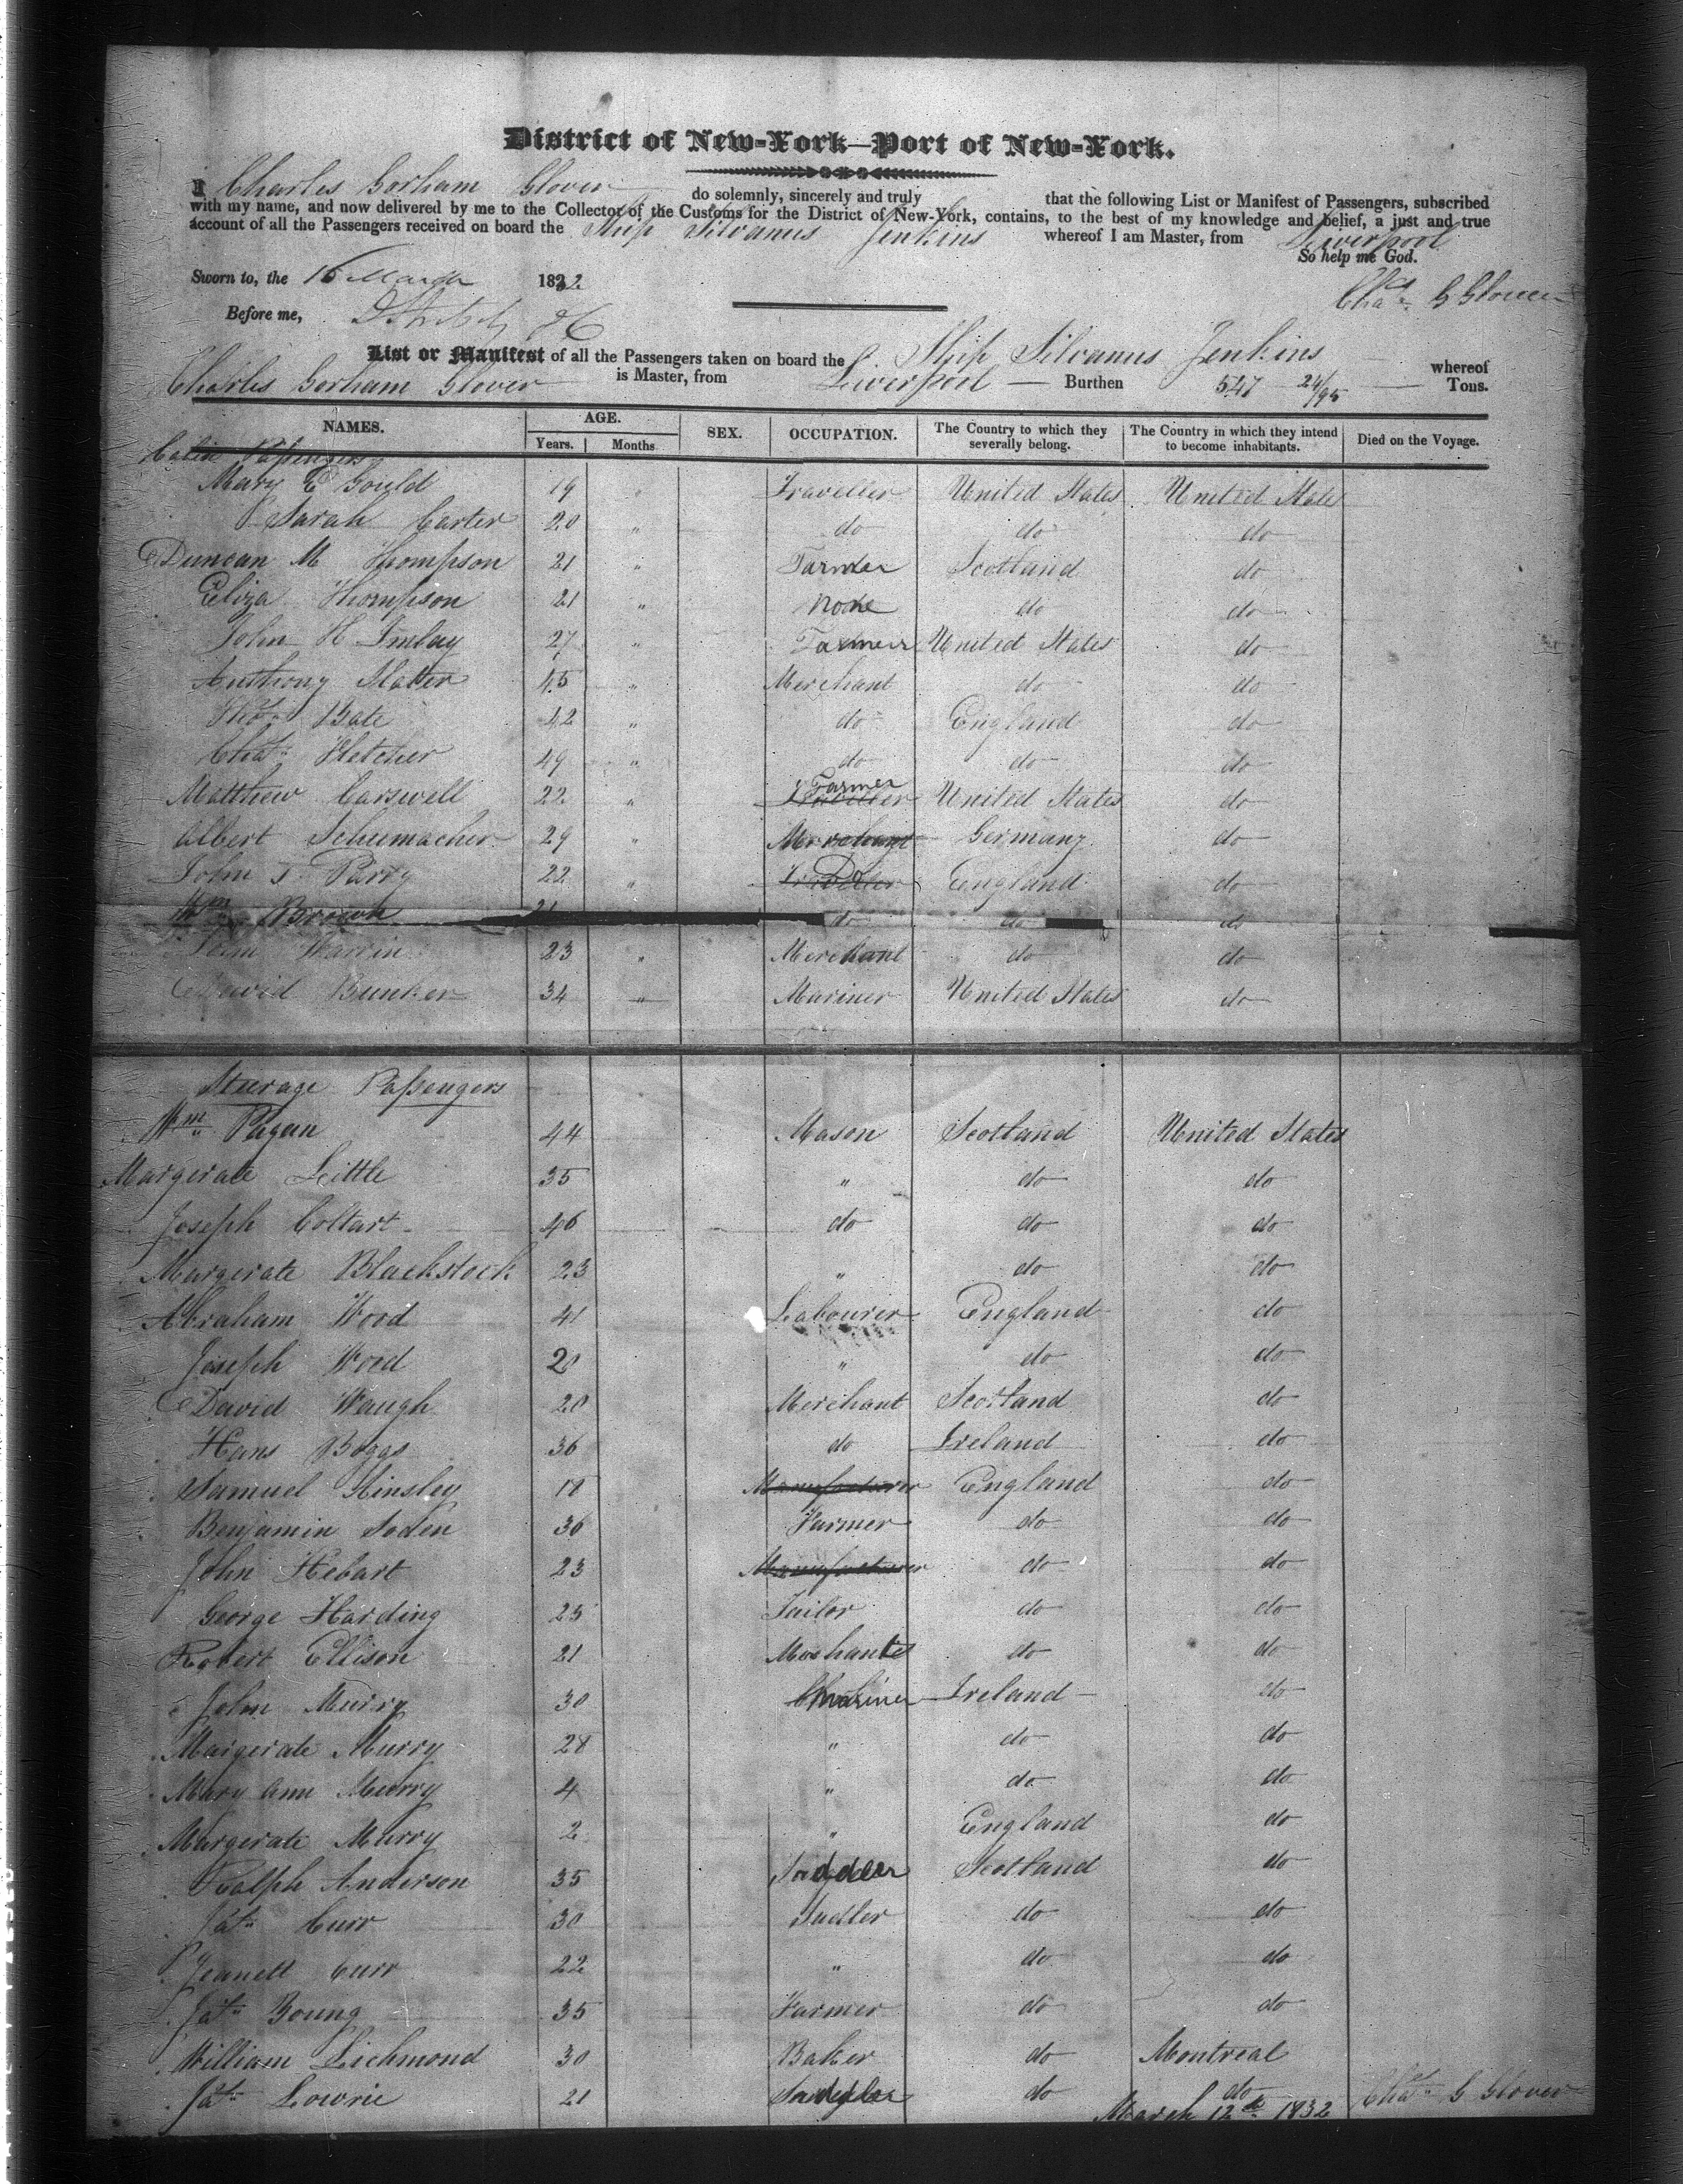 District of New-York—Port of New-York.
I Charles Gorham Glover do solemnly, sincerely and truly that the following List or Manifest of Passengers, subscribed
with my name, and now delivered by me to the Collector of the Customs for the District of New-York, contains, to the best of my knowledge and belief, a just and true
account of all the Passengers received on board the Ship Silvanus Jenkins whereof I am Master, from Liverpool
So help me God.
Sworn to, the 16 March 1832
Chas G Glover
Before me,
List or Manifest of all the Passengers taken on board the Ship Silvanus Jenkins whereof
Charles Gorham Glover is Master, from Liverpool — Burthen 547 24/95 Tons.
NAMES. AGE. Years. Months SEX. OCCUPATION. The Country to which they severally belong. The Country in which they intend to become inhabitants. Died on the Voyage.
Cabin Passengers
Mary E Gould 19 " Traveller United States United States
Sarah Carter 20 " do do do
Duncan M Thompson 21 " Farmer Scotland do
Eliza Thompson 21 " None do do
John H Imlay 27 " Farmer United States do
Anthony Slater 45 " Merchant do do
Thos Bate 42 " do England do
Chas Fletcher 49 " do do do
Matthew Carswell 22 " Farmer United States do
Albert Schumacher 29 " Merchant Germany do
John T Parry 22 " Do England do
Wm Brown 21 do do do
John Warrin 23 " Merchant do do
David Bunker 34 " Mariner United States do
Sturage Passengers
Wm Pagan 44 Mason Scotland United States
Margerate Little 35 " do do
Joseph Coltart 46 do do do
Margerate Blackstock 23 " do do
Abraham Wood 41 Labourer England do
Joseph Wood 20 " do do
David Waugh 20 Merchant Scotland do
Hans Boggs 36 do Ireland do
Samuel Hinsley 18 Manufacturer England do
Benjamin Soden 36 Farmer do do
John Hebart 23 Manufacturer do do
George Harding 25 Tailor do do
Robert Ellison 21 do do
John Murry 30 Ireland do
Margerate Murry 28 " do do
Mary Ann Murry 4 " do do
Margerate Murry 2 " England do
Ralph Anderson 35 Saddler Scotland do
Jas Curr 30 Sadler do do
Jeanett Curr 22 " do do
Jas Young 35 Farmer do do
William Richmond 30 Baker do Montreal
Jas Lowrie 21 do do
March 12th 1832 Chas G Glover